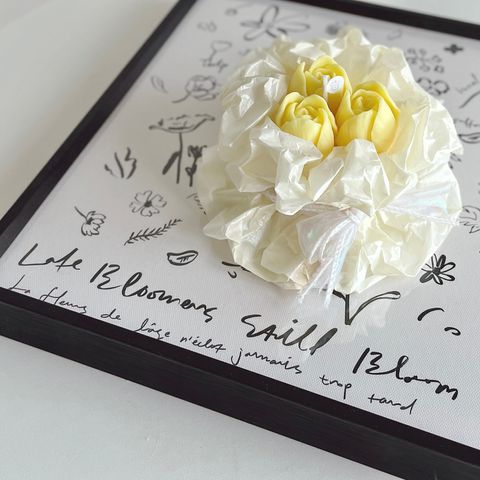 Late Bloomers Still Bloom
La fleurs de l'âge n'éclot jamais trop tard